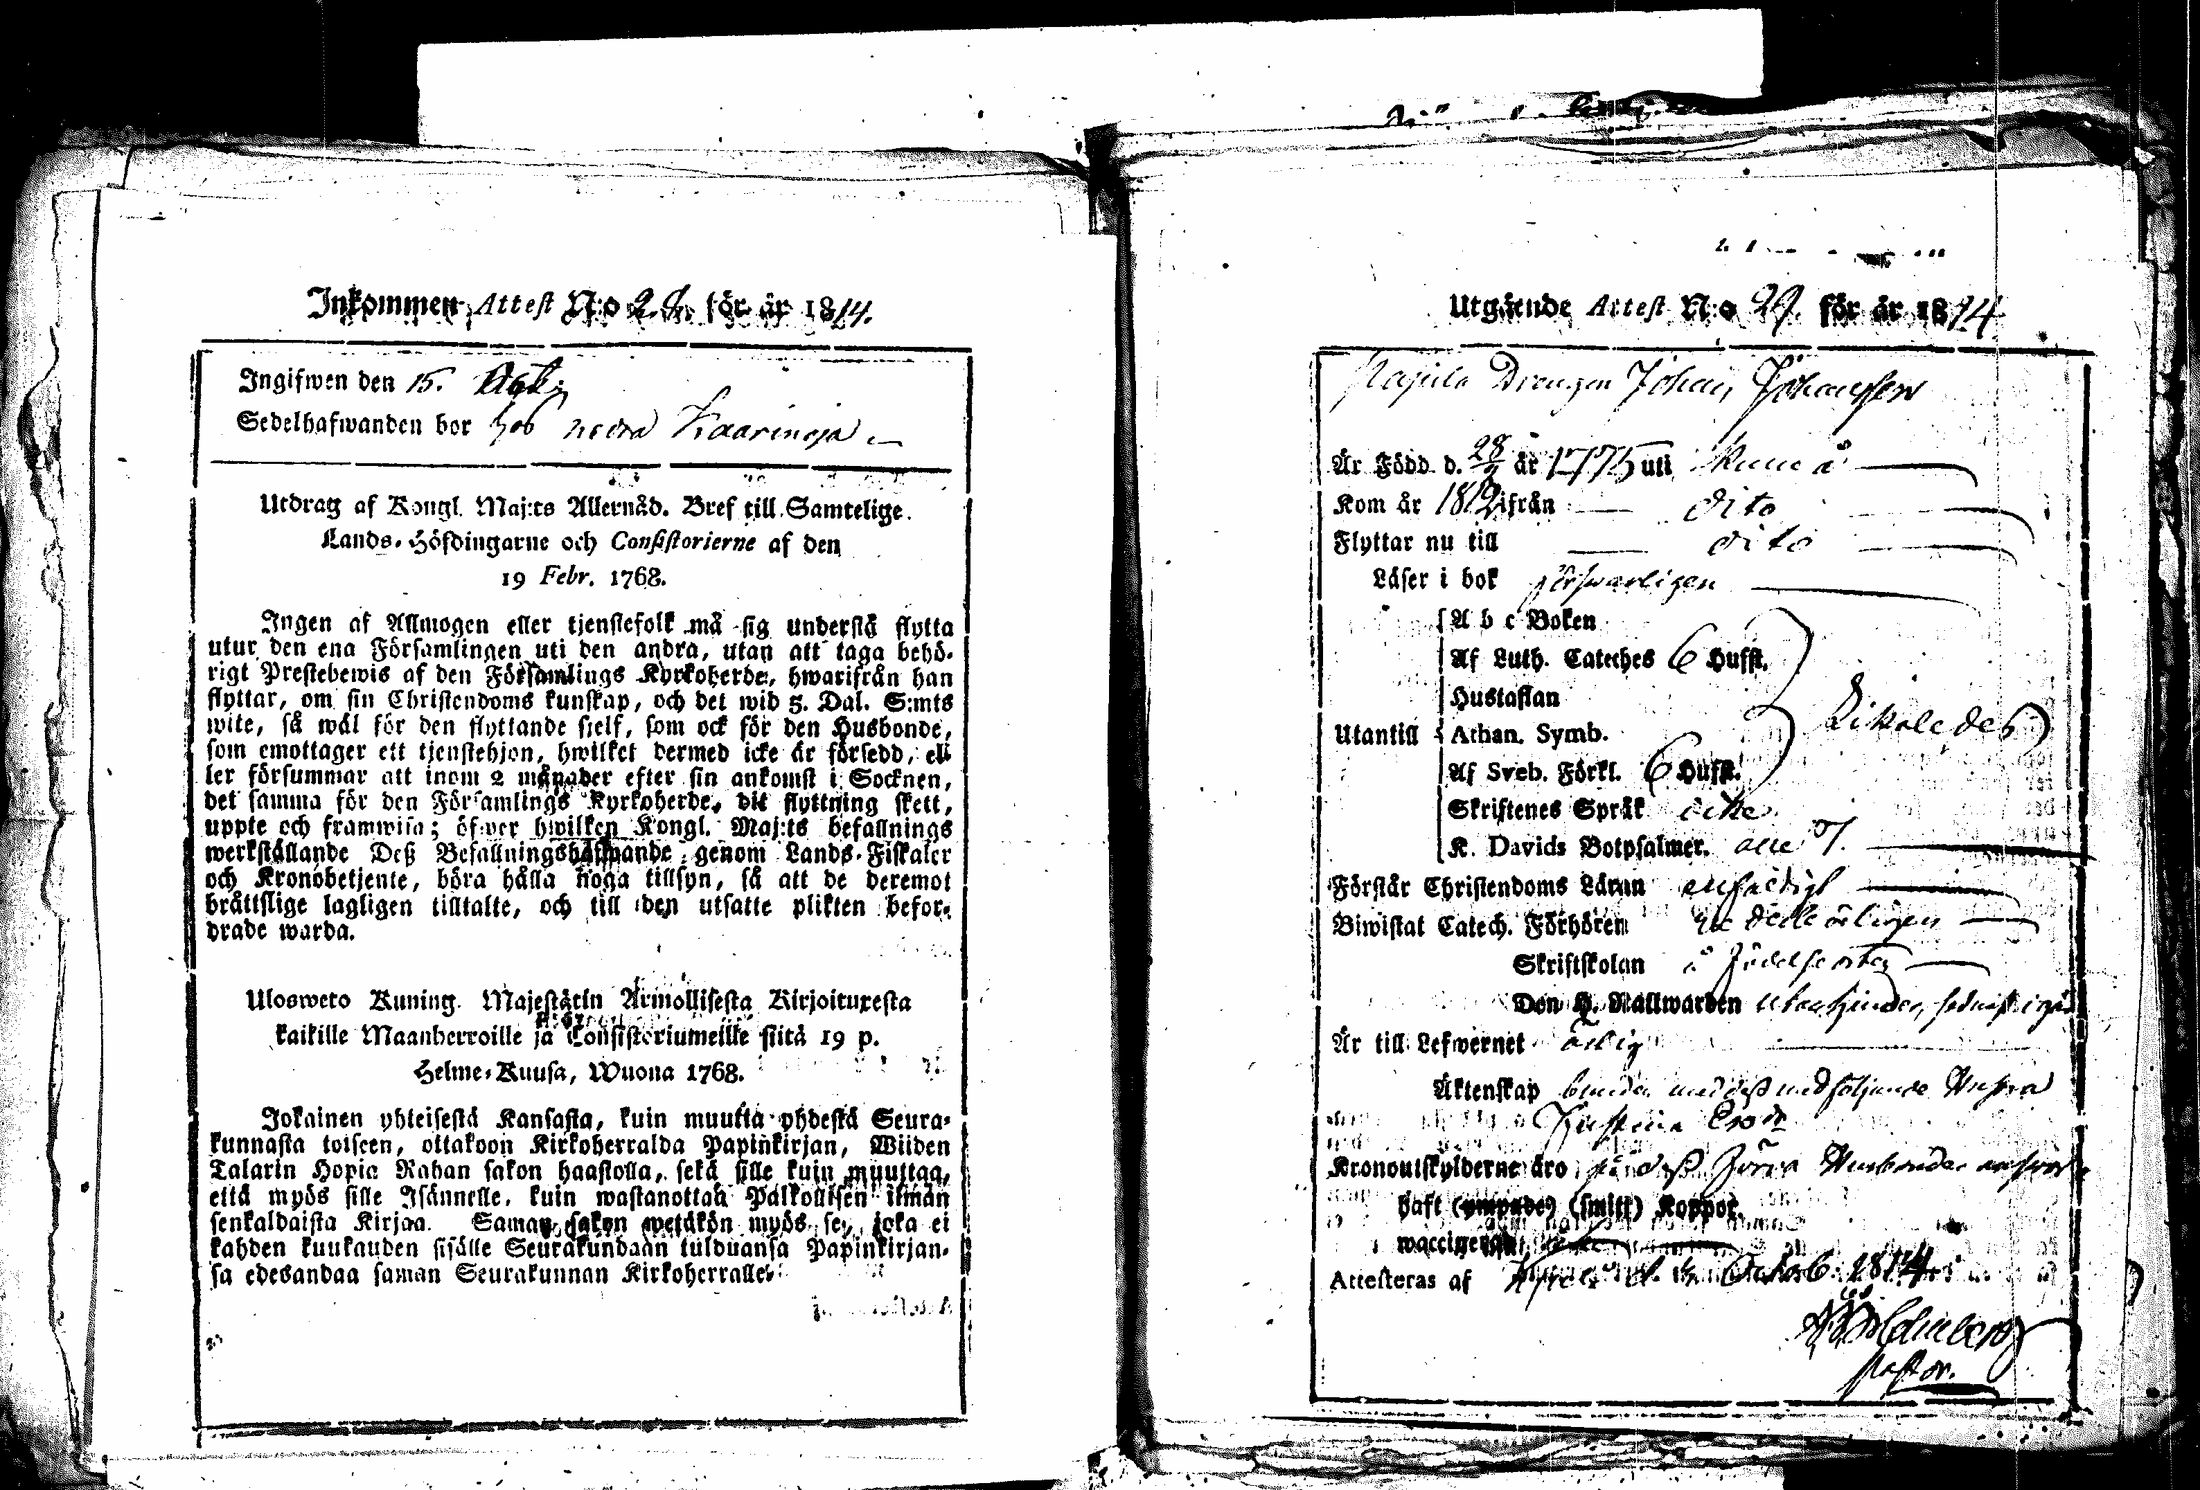 Inkommen Attest N:o 28. för år 1814.
Ingifwen den 15. Octb:
Sedelhafwanden bor hos nedra Kaarinoja
Utdrag af Kongl. Maj:ts Allernåd. Bref till Samtelige
Lands-Höfdingarne och Consistorierne af den
19 Febr. 1768.
Ingen af Allmogen eller tjenstefolk må sig understå flytta
utur den ena Församlingen uti den andra, utan att taga behö-
rigt Prestebewis af den Församlings Kyrkoherde, hwarifrån han
flyttar, om sin Christendoms kunskap, och det wid 5. Dal. S:mts
wite, så wäl för den flyttande sjelf, som ock för den Husbonde,
som emottager ett tjenstehjon, hwilket dermed icke är försedd, el-
ler försummar att inom 2 månader efter sin ankomst i Socknen,
det samma för den Församlings Kyrkoherde, dit flyttning skett,
uppte och framwisa; öfwer hwilken Kongl. Maj:ts befallnings
werkställande Deß Befallningshafwande genom Lands-Fiskaler
och Kronobetjente, böra hålla noga tillsyn, så att de deremot
bråttslige lagligen tilltalte, och till den utsatte plikten befor-
drade warda.
Ulosweto Kuning. Majestätin Armollisesta Kirjoituxesta
kaikille Maanherroille ja Consistoriumeille siitä 19 p.
Helme-Kuusa, Wuona 1768.
Jokainen yhteisestä Kansasta, kuin muutta yhdestä Seura-
kunnasta toiseen, ottakoon Kirkoherralda Papinkirjan, Wiiden
Talarin Hopia Rahan sakon haastolla, sekä sille kuin muuttaa,
että myös sille Isännelle, kuin wastanottaa Palkollisen ilman
senkaldaista Kirjaa. Saman sakon wetäkön myös se, joka ei
kahden kuukauden sisälle Seurakundaan tulduansa Papinkirjan-
sa edesandaa saman Seurakunnan Kirkoherralle.
Utgående Attest N:o 29. för år 1814
Drengen Johan Johansson
Är Född d. 28 år 1775 uti Kumå
Kom år 1812 ifrån dito
Flyttar nu till dito
Läser i bok förswarligen
A b c Boken
Af Luth. Cateches 6 Hufst.
Hustaflan
Utantill Athan. Symb.
Af Sveb. Förkl. 6 Hufst.
Skriftenes Språk icke
K. Davids Botpsalmer. alle 7.
Förstår Christendoms Läran enfaldigt
Biwistat Catech. Förhören
Skriftskolan å födelseorten
Den H. Nattwarden
Är till Lefwernet ärlig
Äktenskap bunden med deß medföljande Hustru
Kronoutskylderne äro
Haft (ympade) (smitt) Koppor.
waccinerad
Attesteras af d. Octob. 1814
Pastor.